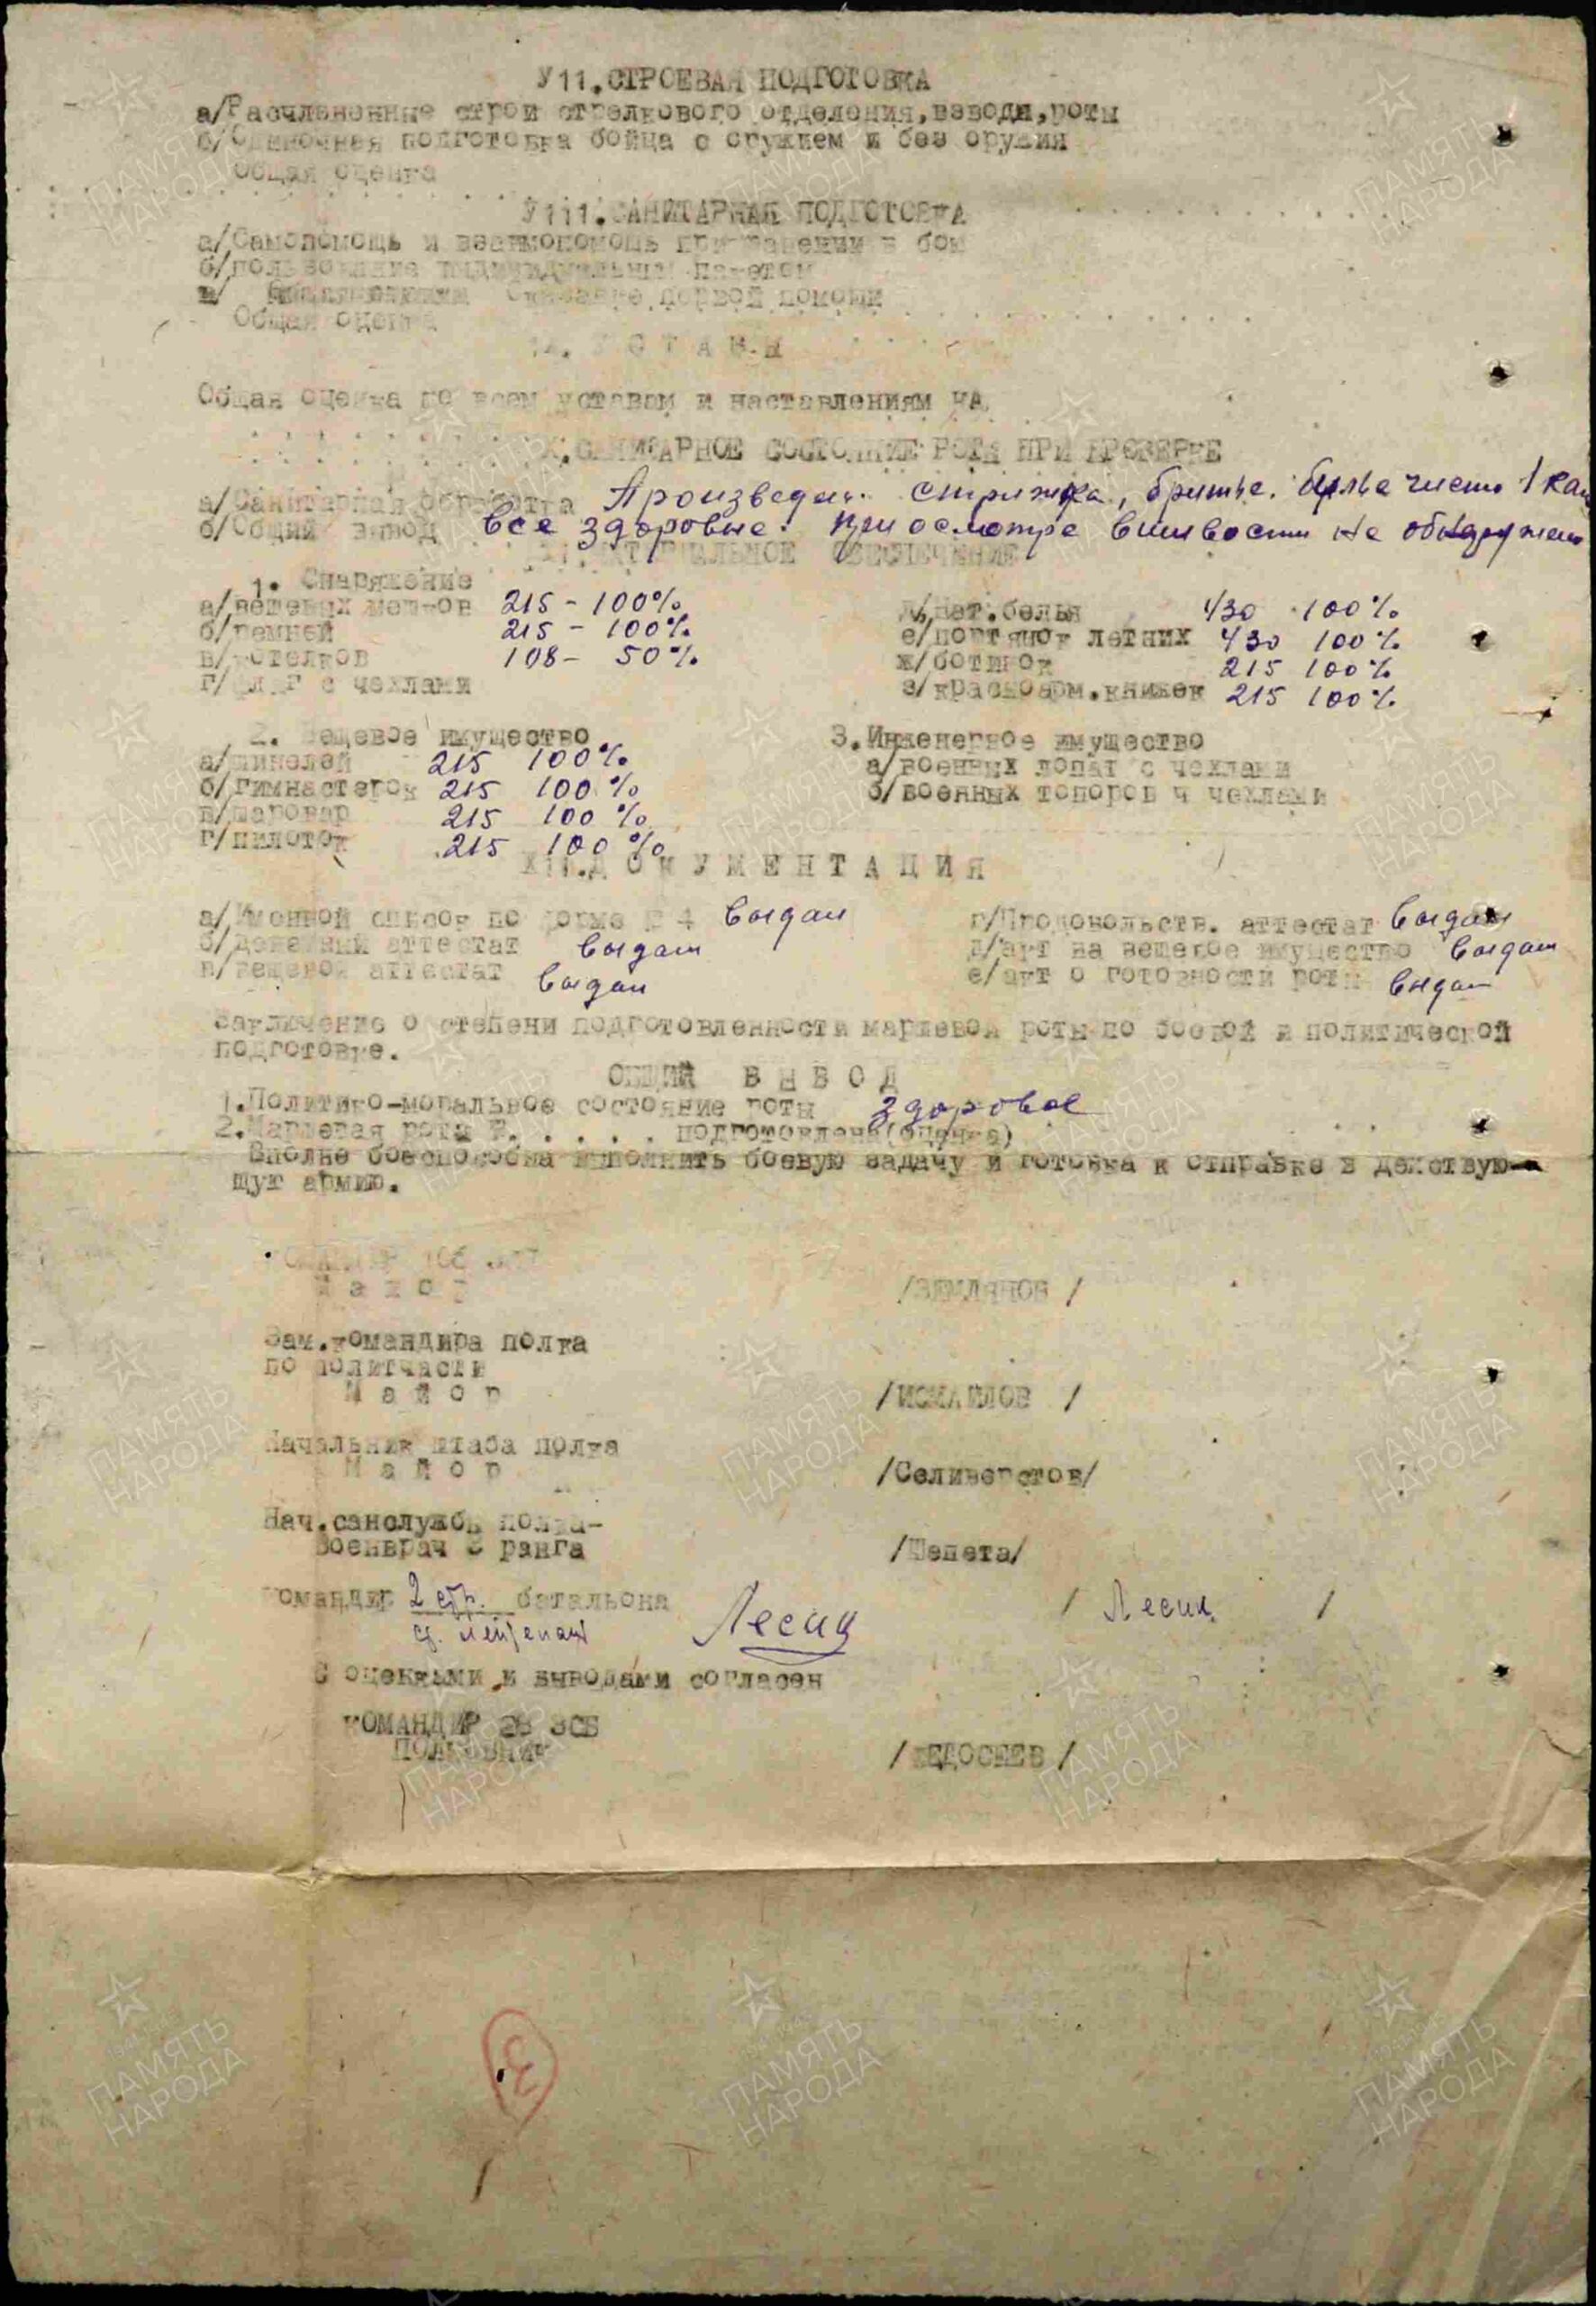 У11.СТРОЕВАЯ ПОДГОТОВКА
а/Расчлененные строи стрелкового отделения,взвода,роты
б/Одиночная подготовка бойца с оружием и без оружия
Общая оценка
У111.САНИТАРНАЯ ПОДГОТОВКА
а/Самопомощь и взаимопомощь при ранении в бою
б/пользование индивидуальным пакетом
в/ оказание первой помощи
Общая оценка
У С Т А В Ы
Общая оценка по всем уставам и наставлениям КА
X.САНИТАРНОЕ СОСТОЯНИЕ РОТЫ ПРИ ПРОВЕРКЕ
а/Санитарная обработка Произведен. стрижка, бритье. белье чисто
б/Общий вывод Все здоровые. при осмотре вшивости не обнаружено
МАТЕРИАЛЬНОЕ ОБЕСПЕЧЕНИЕ
1. Снаряжение
а/вещевых мешков 215 - 100% д/нат.белья 430 100%
б/ремней 215 - 100% е/портянок летних 430 100%
в/котелков 108 - 50% ж/ботинок 215 100%
г/фляг с чехлами з/красноарм.книжек 215 100%
2. Вещевое имущество 3.Инженерное имущество
а/шинелей 215 100% а/военных лопат с чехлами
б/гимнастерок 215 100% б/военных топоров ч чехлами
в/шаровар 215 100%
г/пилоток 215 100%
Д О К У М Е Н Т А Ц И Я
а/Именной список по форме № 4 выдан г/Продовольств. аттестат выдан
б/денежный аттестат выдан д/акт на вещевое имущество выдан
в/вещевой аттестат выдан е/акт о готовности роты выдан
Заключение о степени подготовленности маршевой роты по боевой и политической
подготовке.
ОБЩИЙ В Ы В О Д
1.Политико-моральное состояние роты здоровое
2.Маршевая рота №. . . . . подготовлена(оценка)
Вполне боеспособна выполнить боевую задачу и готовка к отправке в действую-
щую армию.
КОМАНДИР
М а й о р /ЗЕМЛЯНОВ /
Зам.командира полка
по политчасти
М а й о р /ИСМАИЛОВ /
Начальник штаба полка
М а й о р /Селиверстов/
Нач.санслужбы полка-
Военврач 3 ранга /Шепета/
Командир 2 стр. батальона Лесик / Лесик /
ст. лейтенант
С оценками и выводами согласен
КОМАНДИР 28 ЗСБ
ПОЛКОВНИК /ФЕДОСЕЕВ /
3
ПАМЯТЬ
НАРОДА